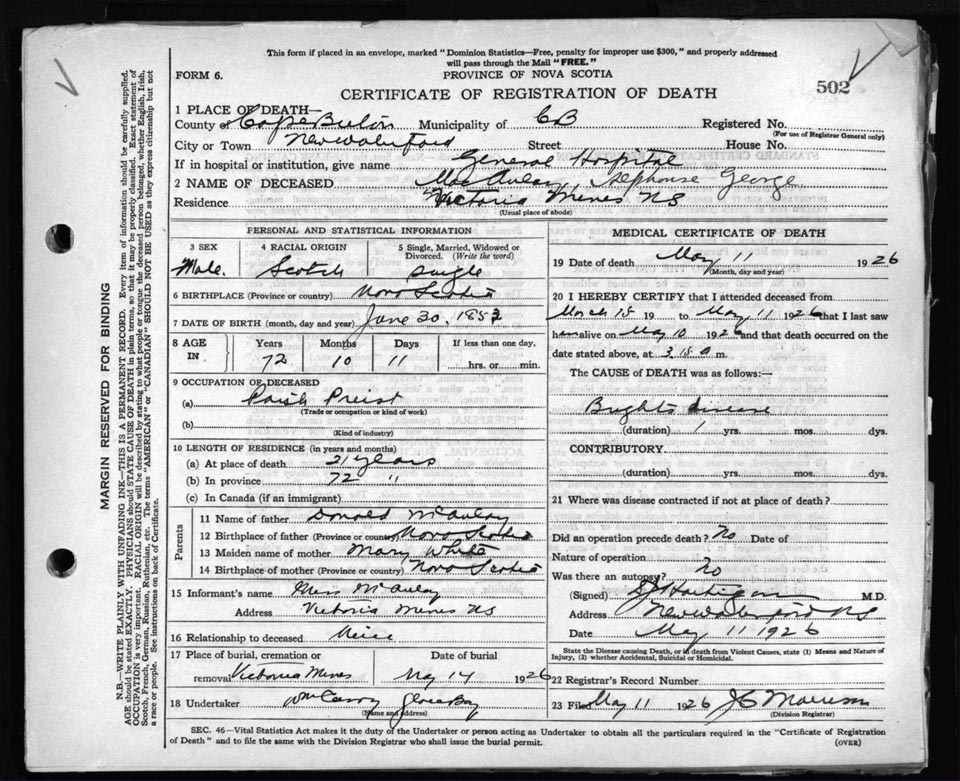 This form if placed in an envelope, marked "Dominion Statistics—Free, penalty for improper use $300," and properly addressed
will pass through the Mail "FREE."
FORM 6. PROVINCE OF NOVA SCOTIA
502
CERTIFICATE OF REGISTRATION OF DEATH
1 PLACE OF DEATH—
County of Cape Breton Municipality of CB Registered No.
(For use of Registrar General only)
City or Town New Waterford Street House No.
If in hospital or institution, give name General Hospital
2 NAME OF DECEASED MacAulay, Alphonse George
Residence Victoria Mines NS
(Usual place of abode)
PERSONAL AND STATISTICAL INFORMATION
3 SEX 4 RACIAL ORIGIN 5 Single, Married, Widowed or
Divorced. (Write the word)
Male. Scotch Single
6 BIRTHPLACE (Province or country) Nova Scotia
7 DATE OF BIRTH (month, day and year) June 30, 1853
8 AGE IN Years Months Days If less than one day,
72 10 11 hrs. or min.
9 OCCUPATION OF DECEASED
(a) Parish Preist
(Trade or occupation or kind of work)
(b)
(Kind of industry)
10 LENGTH OF RESIDENCE (in years and months)
(a) At place of death 21 years
(b) In province 72 "
(c) In Canada (if an immigrant)
Parents
11 Name of father Donald McAulay
12 Birthplace of father (Province or country) Nova Scotia
13 Maiden name of mother Mary White
14 Birthplace of mother (Province or country) Nova Scotia
15 Informant's name Miss McAulay
Address Victoria Mines NS
16 Relationship to deceased Neice
17 Place of burial, cremation or Date of burial
removal Victoria Mines May 14 1926
18 Undertaker Glace Bay
(Name and address)
MEDICAL CERTIFICATE OF DEATH
19 Date of death May 11 1926
(Month, day and year)
20 I HEREBY CERTIFY that I attended deceased from
March 15 19 to May 11 1926 that I last saw
him alive on May 10 1926 and that death occurred on the
date stated above, at 3.15 a m.
The CAUSE of DEATH was as follows:—
Brights disease
(duration) 1 yrs. mos. dys.
CONTRIBUTORY.
(duration) yrs. mos. dys.
21 Where was disease contracted if not at place of death?
Did an operation precede death? No Date of
Nature of operation
Was there an autopsy? No
(Signed) Hartigan M.D.
Address New Waterford NS
Date May 11 1926
State the Disease causing Death, or in death from Violent Causes, state (1) Means and Nature of
Injury, (2) whether Accidental, Suicidal or Homicidal.
22 Registrar's Record Number
23 Filed May 11 1926 Morrison
(Division Registrar)
SEC. 46—Vital Statistics Act makes it the duty of the Undertaker or person acting as Undertaker to obtain all the particulars required in the "Certificate of Registration
of Death" and to file the same with the Division Registrar who shall issue the burial permit. (OVER)
MARGIN RESERVED FOR BINDING
N.B.—WRITE PLAINLY WITH UNFADING INK—THIS IS A PERMANENT RECORD. Every item of information should be carefully supplied.
AGE should be stated EXACTLY. PHYSICIANS should STATE CAUSE OF DEATH in plain terms, so that it may be properly classified. Exact statement of
OCCUPATION is very important. RACIAL ORIGIN will be described by stating to what people or tongue the deceased person belonged, whether English, Irish,
Scotch, French, German, Russian, Ruthenian, etc. The terms "AMERICAN" or "CANADIAN" SHOULD NOT BE USED as they express citizenship but not
a race or people. See instructions on back of Certificate.